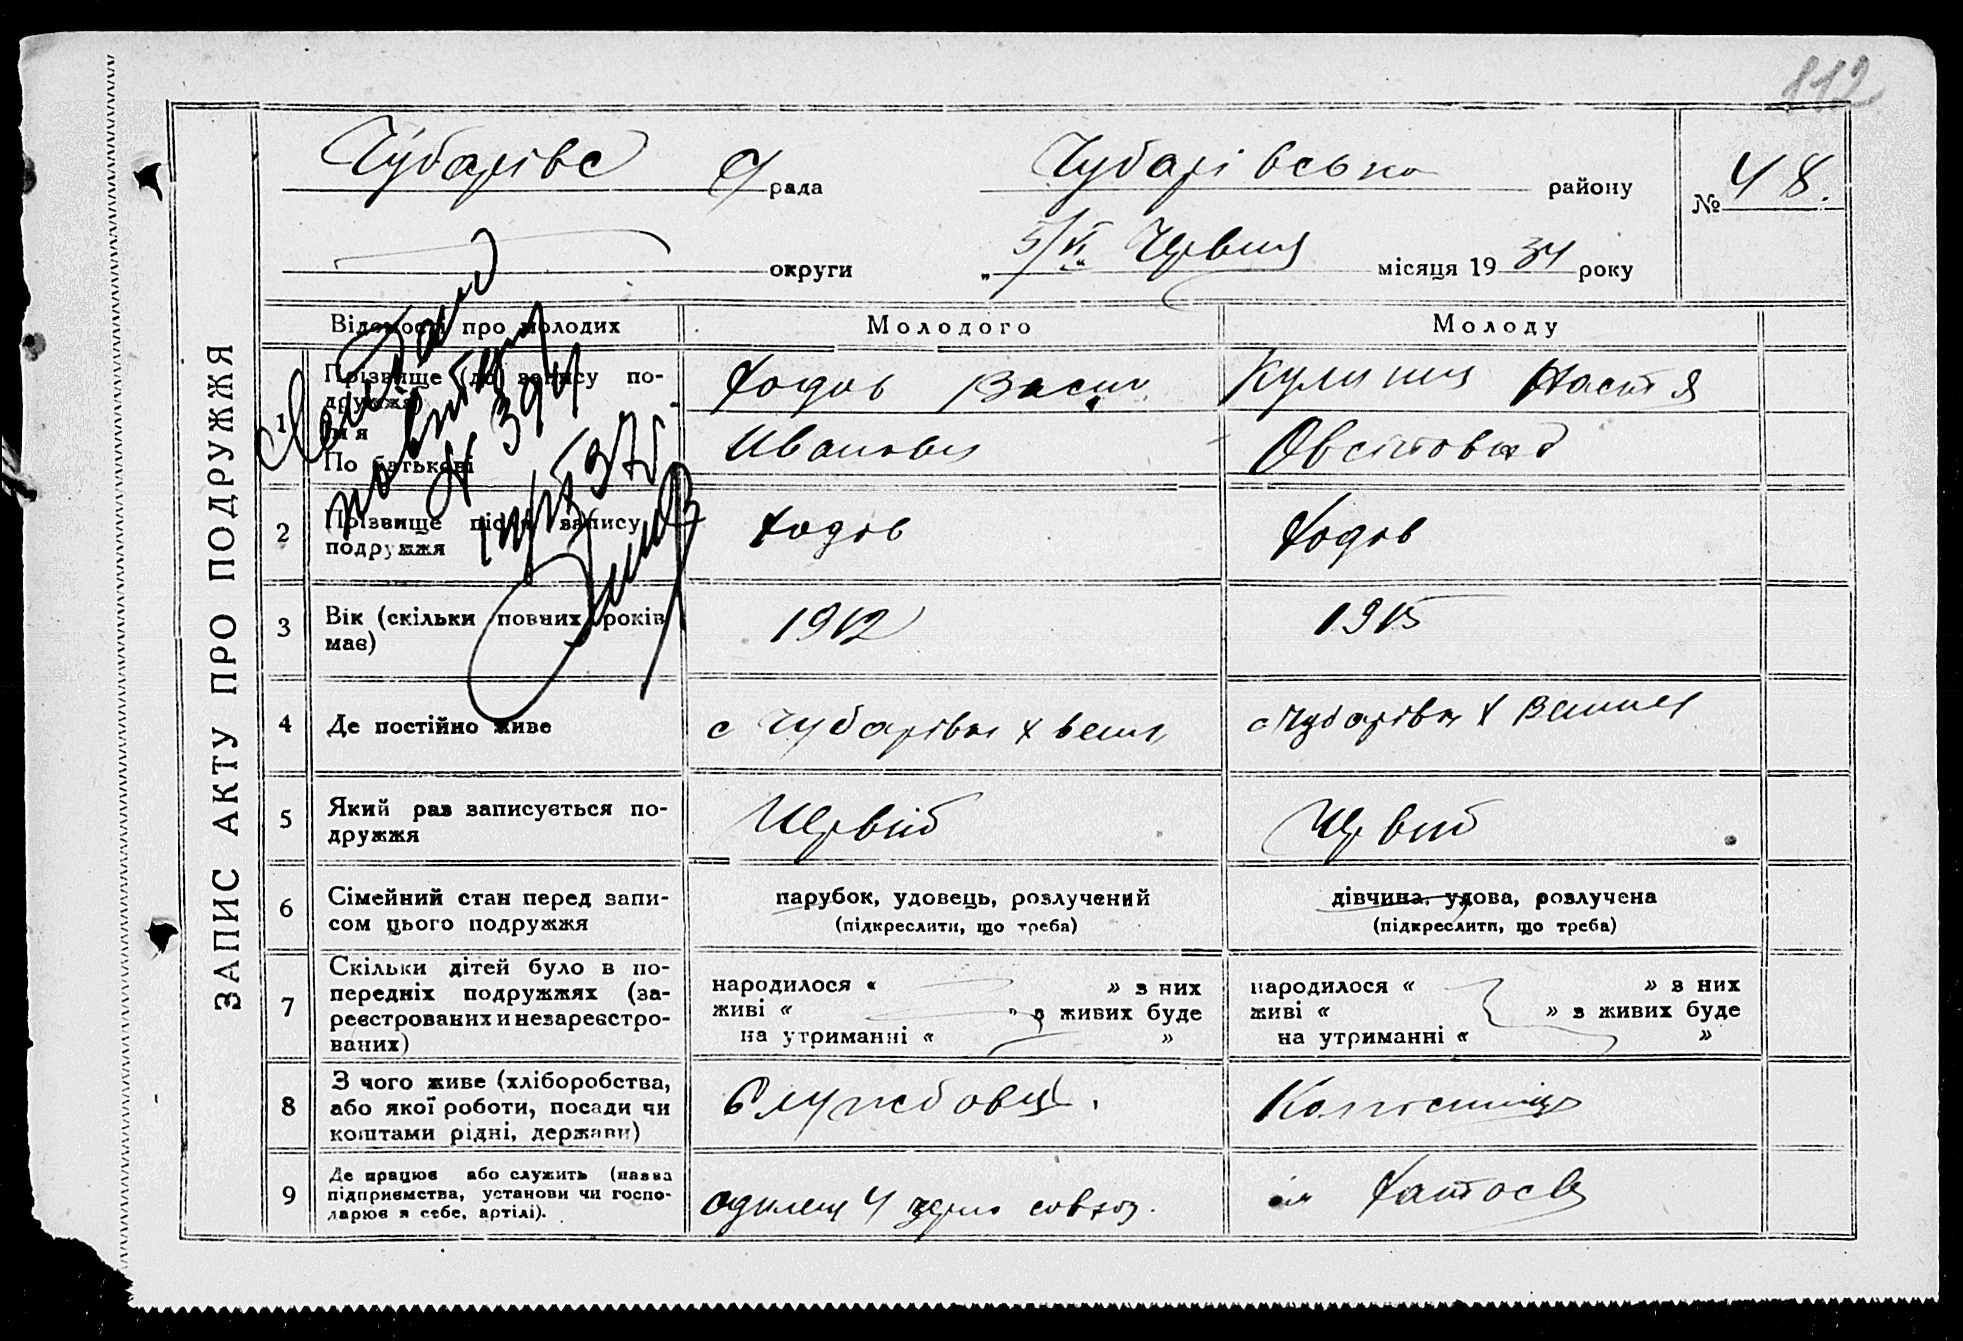 812
ЗАПИС АКТУ ПРО ПОДРУЖЖЯ
Чубарівс с/рада Чубарівсько району № 48.
округи „5/VI“ Червня місяця 1934 року
Відомості про молодих Молодого Молоду
1 Прізвище (до запису по-
дружжя)
Ім'я
По батькові
Ходов Васил
Иванович
Настя
2 Прізвище після запису
подружжя
Ходов
Ходов
3 Вік (скільки повних років
має)
1912
1915
4 Де постійно живе
с Чубарівка
с Чубарівка
5 Який раз записується по-
дружжя
Первий
Первий
6 Сімейний стан перед запи-
сом цього подружжя
парубок, удовець, розлучений
(підкреслити, що треба)
дівчина, удова, розлучена
(підкреслити, що треба)
7 Скільки дітей було в по-
передніх подружжях (за-
реєстрованих и незареєстро-
ваних)
народилося « » з них
живі « » з живих буде
на утриманні « »
народилося « » з них
живі « » з живих буде
на утриманні « »
8 З чого живе (хліборобства,
або якої роботи, посади чи
коштами рідні, держави)
Службовц.
Колгоспниця
9 Де працює або служить (назва
підприємства, установи чи госпо-
дарює я себе, артілі).
4 зерно совхоз.
ім
№ 394
37